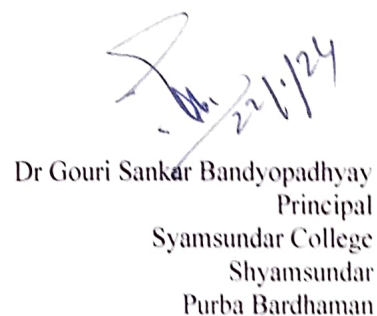 22/1/24
Dr Gouri Sankar Bandyopadhyay
Principal
Syamsundar College
Shyamsundar
Purba Bardhaman